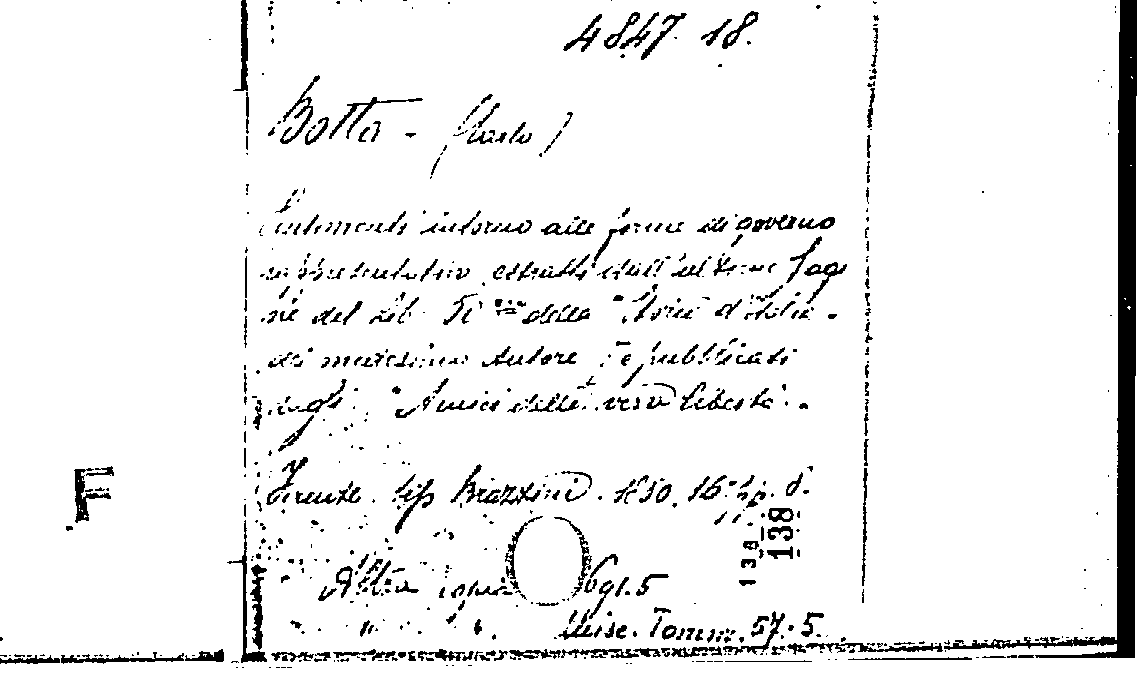 4847. 18.
Botta - (Carlo)
Sentimenti intorno alle forme di governo
rappresentativo, estratti dall'ultime pagi
ne del Lib. della "Storia d'Italia.
del medesimo Autore, e pubblicati
dagli "Amici della vera libertà".
Firenze. tip. Brazzini. 1850. 16° pp. 8.
F
138
138
Altra copia 691.5
" " Misc. Tomm. 57.5.